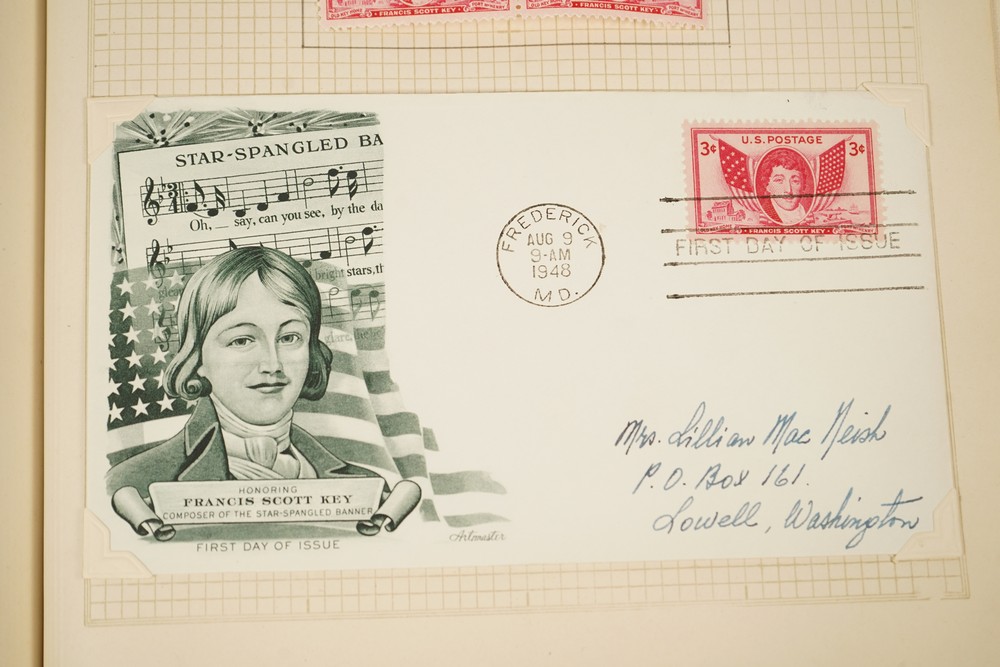 FRANCIS SCOTT KEY
FRANCIS SCOTT KEY
STAR-SPANGLED BA
Oh, say, can you see, by the da
bright stars, th
glare, the
U.S. POSTAGE
3¢ 3¢
FRANCIS SCOTT KEY
FREDERICK
AUG 9
9-AM
1948
MD.
FIRST DAY OF ISSUE
HONORING
FRANCIS SCOTT KEY
COMPOSER OF THE STAR-SPANGLED BANNER
FIRST DAY OF ISSUE
Artmaster
Mrs. Lillian Mac Neish
P.O. Box 161.
Lowell, Washington